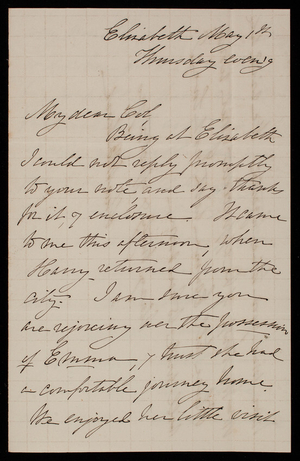 Elizabeth May 1st
Thursday eveng
My dear Col,
Being at Elizabeth
I could not reply promptly
to your note and say thanks
for it, & enclosure. It came
to me this afternoon, when
Harry returned from the
city. I am sure you
are rejoicing over the possession
of Emma, & trust she had
a comfortable journey home
We enjoyed her little visit